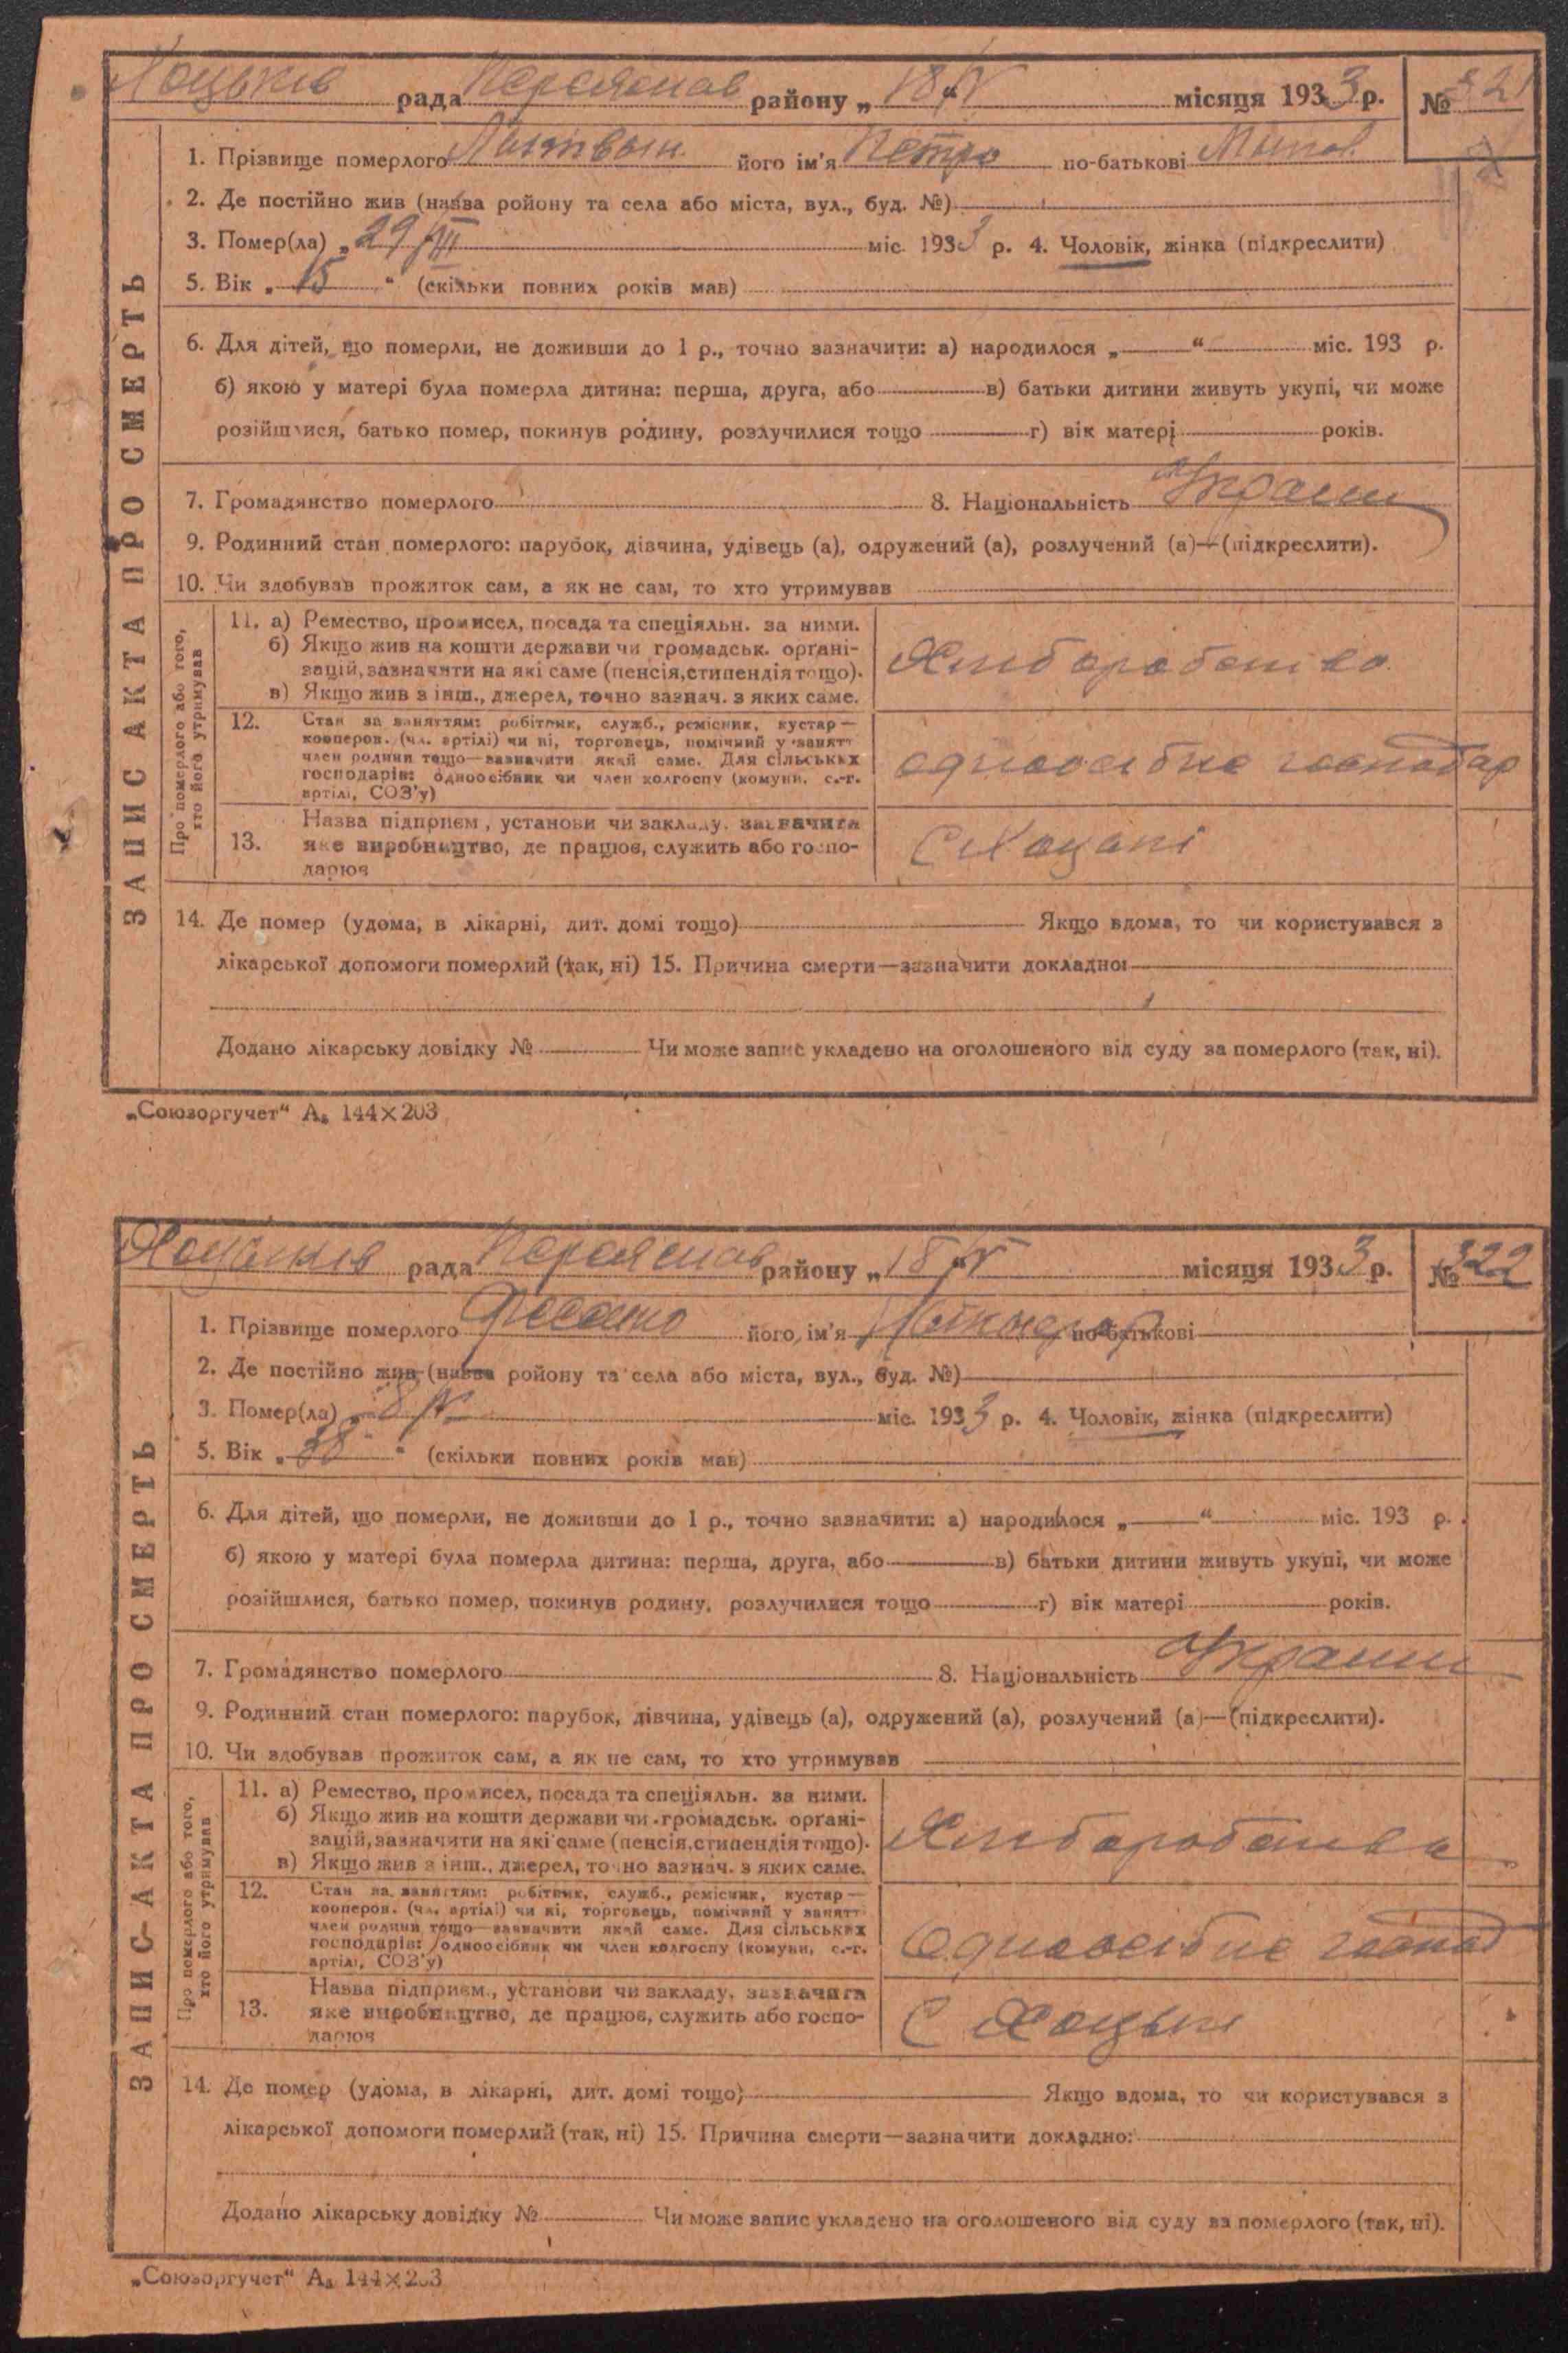 Хоцьків рада Переяслав району „18/IV" місяця 1933 р. № 321
1. Прізвище померлого Литвын його ім'я Петро по-батькові
2. Де постійно жив (назва ройону та села або міста, вул., буд. №)
3. Помер(ла) „29/III міс. 1933 р. 4. Чоловік, жінка (підкреслити)
5. Вік „15" (скільки повних років мав)
6. Для дітей, що померли, не доживши до 1 р., точно зазначити: а) народилося „ " міс. 193 р.
б) якою у матері була померла дитина: перша, друга, або в) батьки дитини живуть укупі, чи може
розійшлися, батько помер, покинув родину, розлучилися тощо г) вік матері років.
7. Громадянство померлого 8. Національність Украин
9. Родинний стан померлого: парубок, дівчина, удівець (а), одружений (а), розлучений (а)—(підкреслити).
10. Чи здобував прожиток сам, а як не сам, то хто утримував
ЗАПИС АКТА ПРО СМЕРТЬ
Про померлого або того,
хто його утримував
11. а) Ремество, промисел, посада та спеціяльн. за ними.
б) Якщо жив на кошти держави чи громадськ. орґані-
зацій, зазначити на які саме (пенсія, стипендія тощо).
в) Якщо жив з інш., джерел, точно зазнач. з яких саме.
Хлиборобство
12. Стан за заняттям: робітник, служб., ремісник, кустар—
кооперов. (чл. артілі) чи ні, торговець, помічний у занятт
член родини тощо—зазначити який саме. Для сільських
господарів: одноосібник чи член колгоспу (комуни, с.-г.
артілі, СОЗ'у)
одноосібне господар
13. Назва підприєм., установи чи закладу, зазначити
яке виробництво, де працює, служить або госпо-
дарює
С Хоцькі
14. Де помер (удома, в лікарні, дит. домі тощо) Якщо вдома, то чи користувався з
лікарської допомоги померлий (так, ні) 15. Причина смерти—зазначити докладно:
Додано лікарську довідку № Чи може запис укладено на оголошеного від суду за померлого (так, ні).
„Союзоргучет" А₅ 144×203
Хоцьків рада Переяслав району „18/IV" місяця 1933 р. № 322
1. Прізвище померлого його ім'я по-батькові
2. Де постійно жив (назва ройону та села або міста, вул., буд. №)
3. Помер(ла) „8/IV міс. 1933 р. 4. Чоловік, жінка (підкреслити)
5. Вік „38" (скільки повних років мав)
6. Для дітей, що померли, не доживши до 1 р., точно зазначити: а) народилося „ " міс. 193 р.
б) якою у матері була померла дитина: перша, друга, або в) батьки дитини живуть укупі, чи може
розійшлися, батько помер, покинув родину, розлучилися тощо г) вік матері років.
7. Громадянство померлого 8. Національність Украин
9. Родинний стан померлого: парубок, дівчина, удівець (а), одружений (а), розлучений (а)—(підкреслити).
10. Чи здобував прожиток сам, а як не сам, то хто утримував
ЗАПИС АКТА ПРО СМЕРТЬ
Про померлого або того,
хто його утримував
11. а) Ремество, промисел, посада та спеціяльн. за ними.
б) Якщо жив на кошти держави чи громадськ. орґані-
зацій, зазначити на які саме (пенсія, стипендія тощо).
в) Якщо жив з інш., джерел, точно зазнач. з яких саме.
Хлиборобства
12. Стан за заняттям: робітник, служб., ремісник, кустар—
кооперов. (чл. артілі) чи ні, торговець, помічний у занятт
член родини тощо—зазначити який саме. Для сільських
господарів: одноосібник чи член колгоспу (комуни, с.-г.
артілі, СОЗ'у)
Одноосібне господ
13. Назва підприєм., установи чи закладу, зазначити
яке виробництво, де працює, служить або госпо-
дарює
С Хоцьки
14. Де помер (удома, в лікарні, дит. домі тощо) Якщо вдома, то чи користувався з
лікарської допомоги померлий (так, ні) 15. Причина смерти—зазначити докладно:
Додано лікарську довідку № Чи може запис укладено на оголошеного від суду за померлого (так, ні).
„Союзоргучет" А₅ 144×203